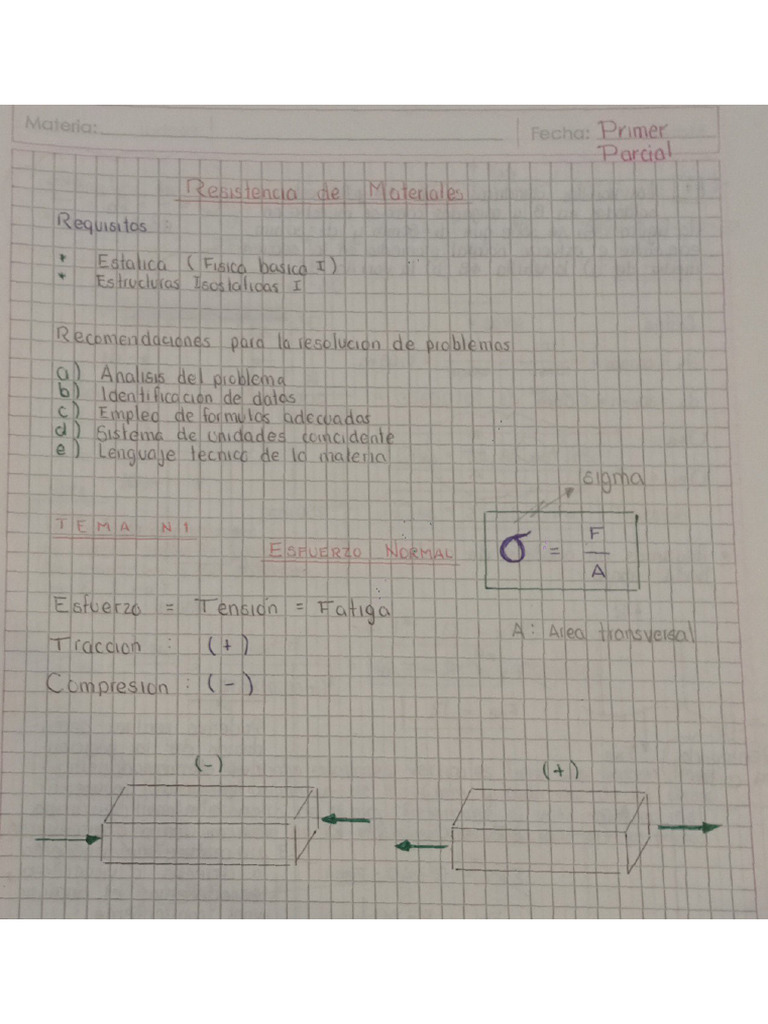 Materia: Fecha: Primer
Parcial
Resistencia de Materiales
Requisitos :
* Estatica (Fisica basica I)
* Estructuras Isostaticas I
Recomendaciones para la resolucion de problemas
a) Analisis del problema
b) Identificacion de datos
c) Empleo de formulas adecuadas
d) Sistema de unidades coincidente
e) Lenguaje tecnico de la materia
sigma
TEMA N1
ESFUERZO NORMAL
σ = F
A
Esfuerzo = Tensión = Fatiga
A: Area transversal
Traccion : (+)
Compresion : (-)
(-) (+)